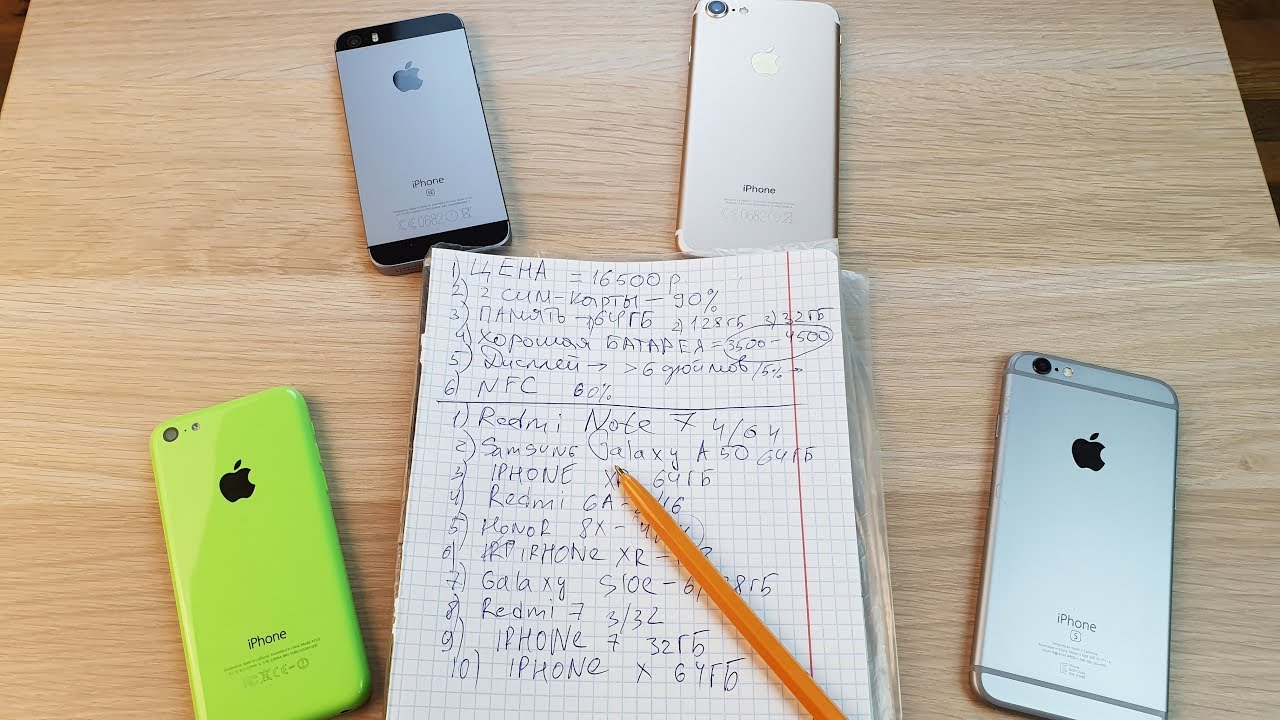 iPhone
SE
iPhone
1) ЦЕНА = 16500р
2) 2 СИМ-КАРТЫ – 90%
3) ПАМЯТЬ – 1) 64ГБ 2) 128ГБ 3) 32ГБ
4) ХОРОШАЯ БАТАРЕЯ = 3500 – 4500
5) Дисплей → > 6 дюймов /5% →
6) NFC 60%
1) Redmi Note 7 4/64
2) Samsung Galaxy A50 64ГБ
3) IPHONE 64ГБ
4) Redmi 6A
5) HONOR 8X –
6) IPHONE XR –
7) Galaxy S10e –
8) Redmi 7 3/32
9) IPHONE 7 32ГБ
10) IPHONE X 64ГБ
iPhone
iPhone
S